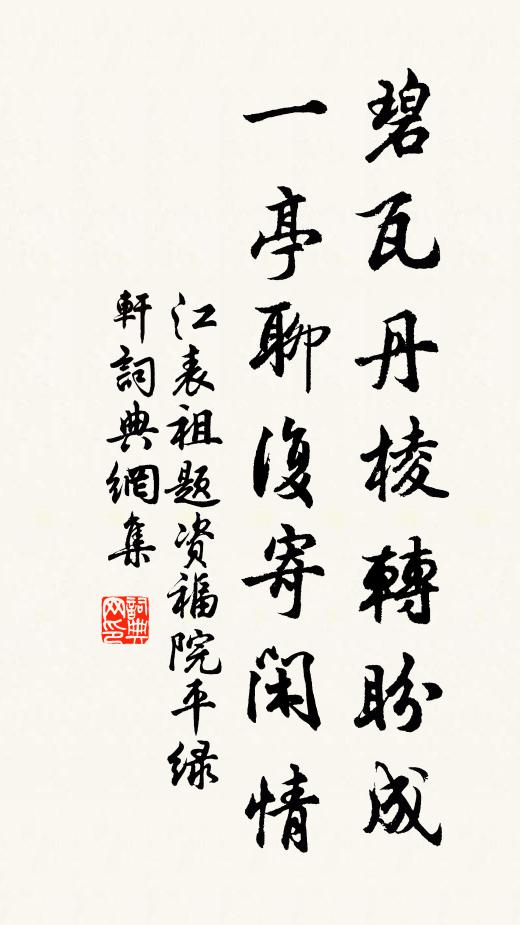 碧瓦丹棱轉盼成
一亭聊復寄閑情
江表祖题资福院平绿
軒詞典網集
詞典网印